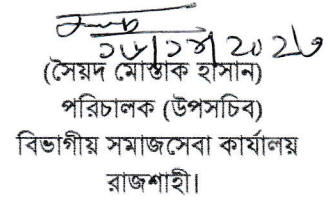 (সৈয়দ মোস্তাক হাসান)
পরিচালক (উপসচিব)
বিভাগীয় সমাজসেবা কার্যালয়
রাজশাহী।